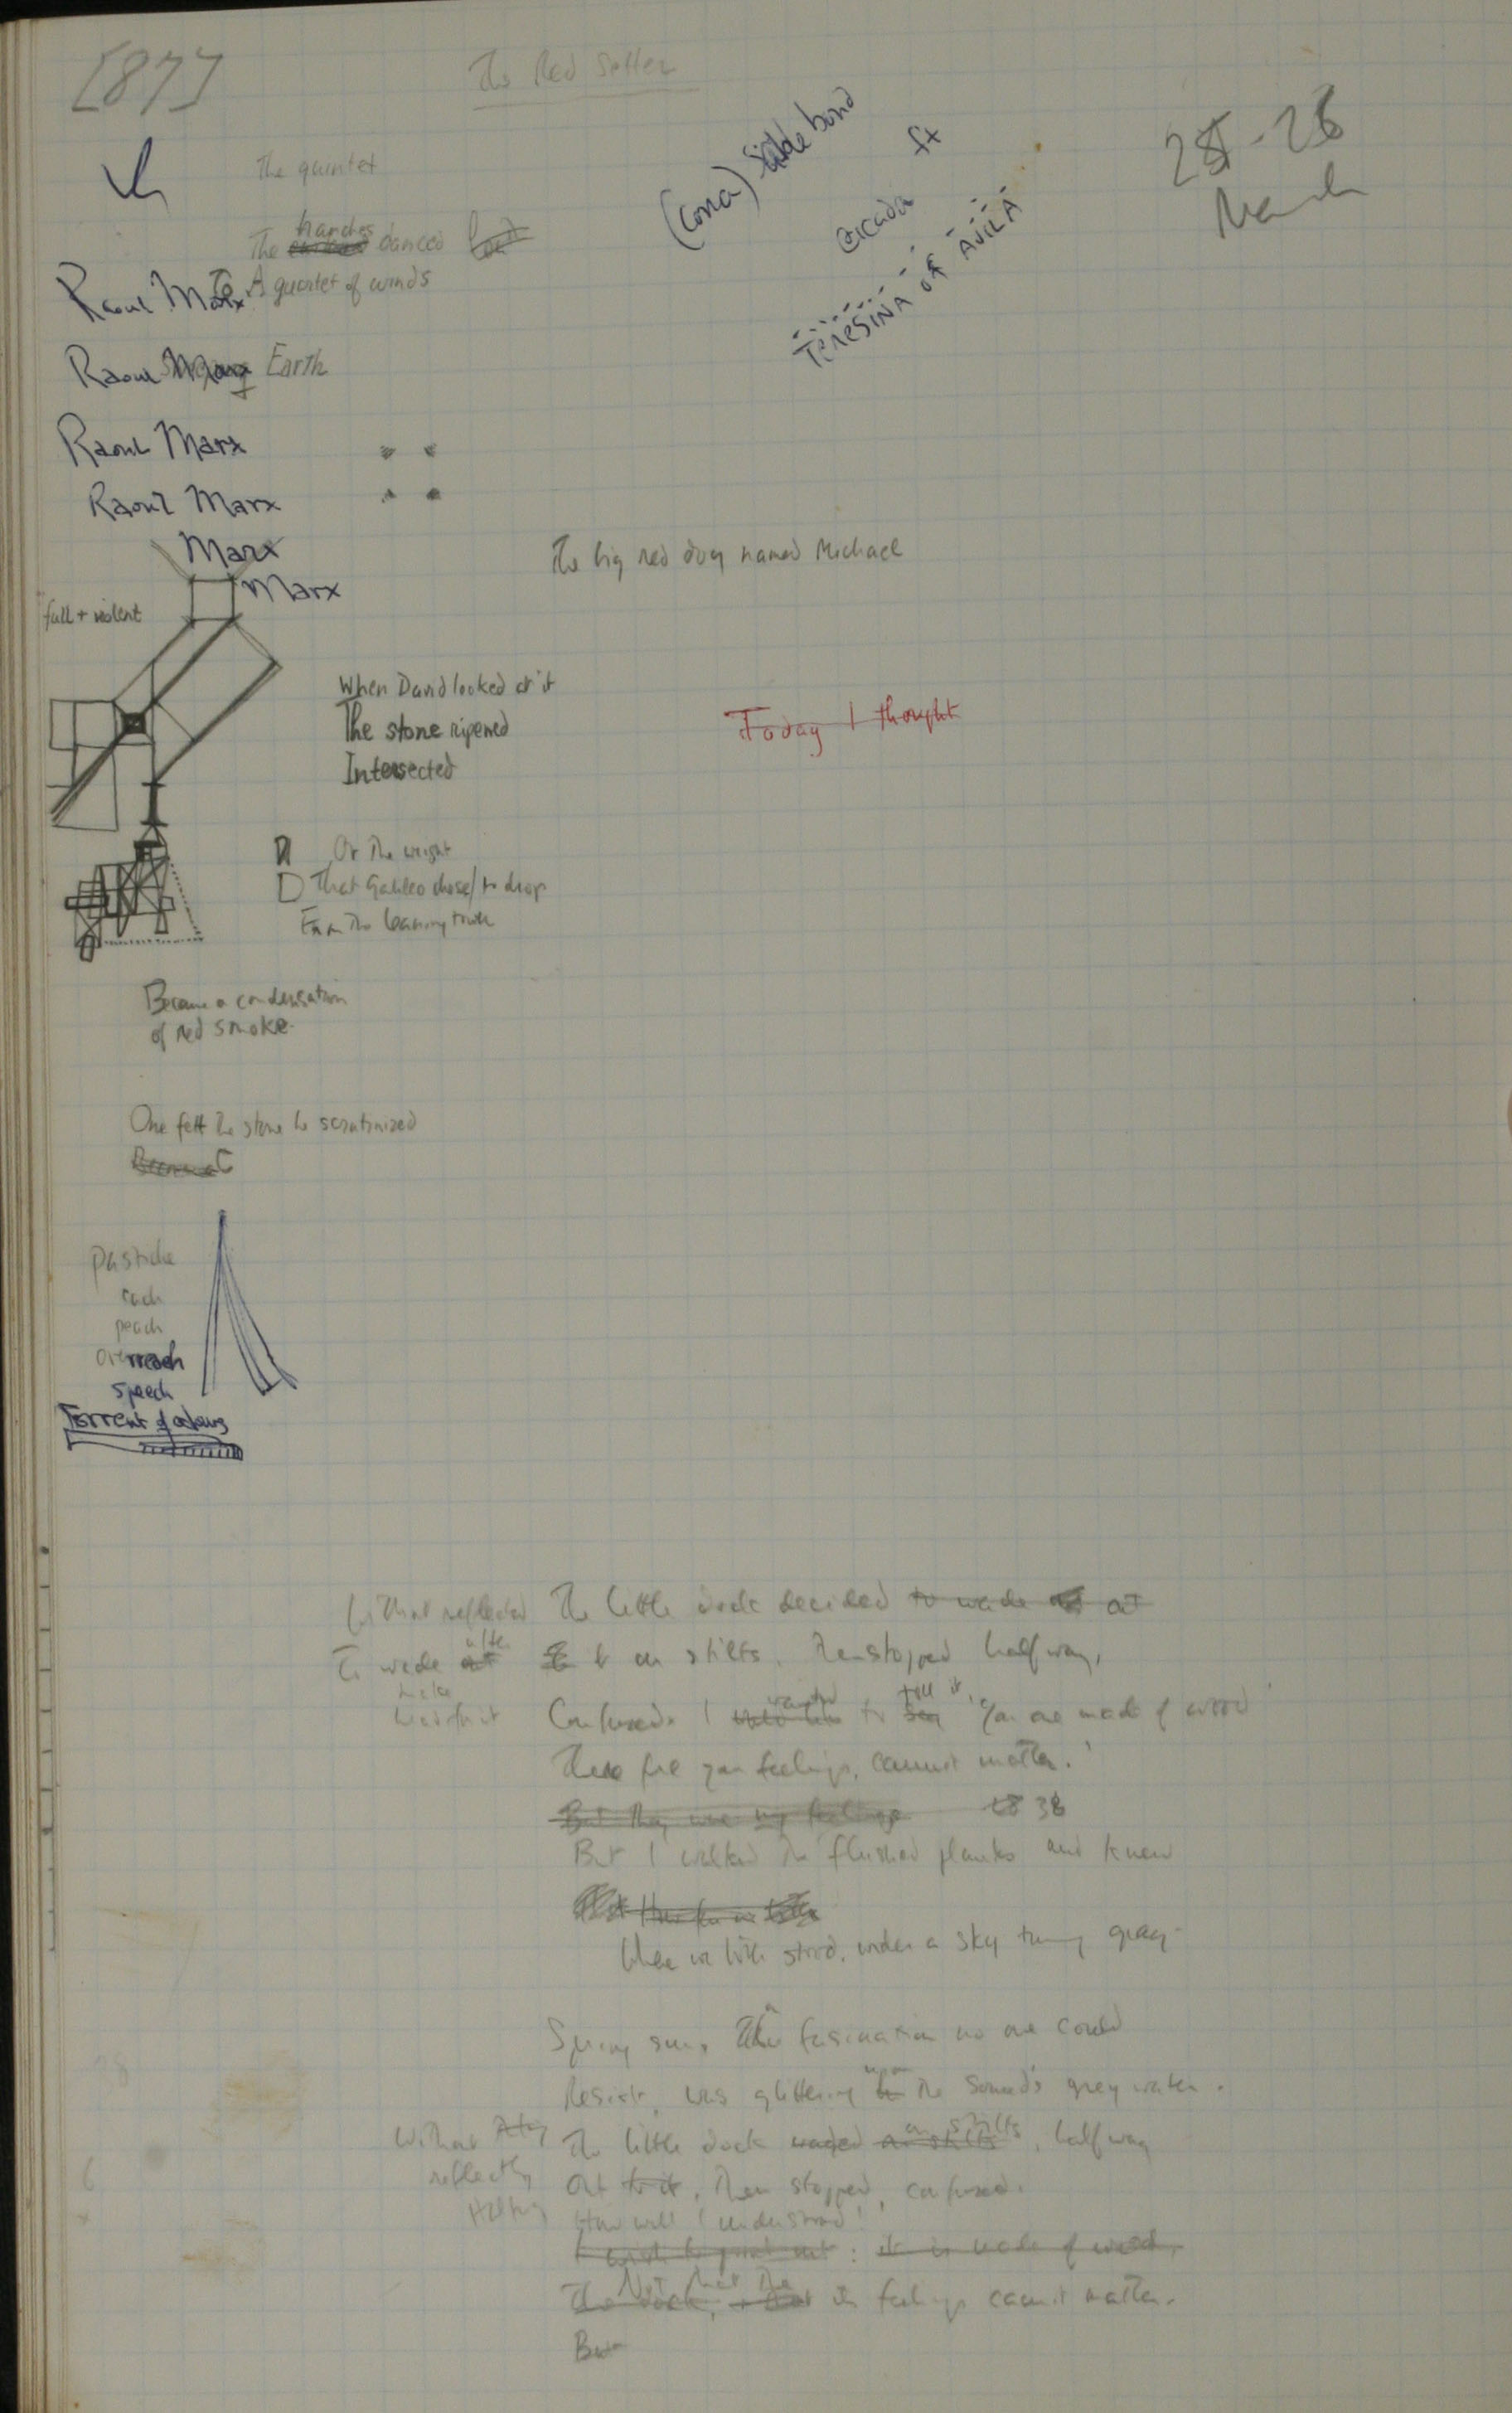 [87]
The Red Setter
25-26
March
The quintet
(Cona) Side bond
Cicada ft
TERESINA OF AVILA
harches
The danced
To A quartet of winds
Raoul Marx
Raoul Marx Earth
Raoul Marx
Raoul Marx
Marx
Marx
The big red dog named Michael
full + violent
When David looked at it
The stone ripened
Intersected
Today I thought
Or The weight
That Galileo chose / to drop
From The leaning
Became a condensation
of red smoke.
One felt The stone he scrutinized
Became
Pastiche
each
peach
overreach
speech
Torrent of colours
The little dock decided to wade out
To wade after
it on stilts. Then stopped halfway,
Confused. I wanted to tell it, 'You are made of wood
Therefore your feelings, cannot matter.'
But they were my feelings 38
But I walked The flushed planks and knew
Where we both stood, under a sky turning gray
Spring sun, The fascination no one could
Resist, was glittering upon The Sound's grey water.
Without
reflecting
The little dock waded on stilts, halfway
Out to it, Then stopped, confused.
How well I understood!
I wish to point out: it is made of wood,
Not that The
The dock, its feelings cannot matter.
But